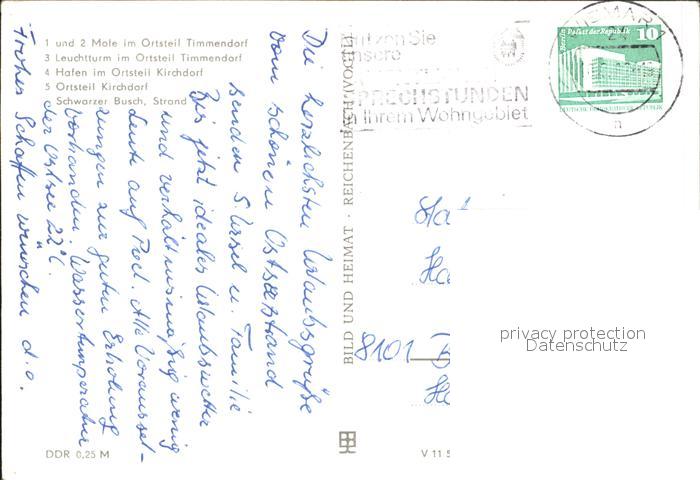 1 und 2 Mole im Ortsteil Timmendorf
3 Leuchtturm im Ortsteil Timmendorf
4 Hafen im Ortsteil Kirchdorf
5 Ortsteil Kirchdorf
Schwarzer Busch, Strand
Die herzlichsten Urlaubsgrüße
vom schönen Ostseestrand
senden S. Ursel u. Familie
Bis jetzt ideales Urlaubswetter
und verhältnismäßig wenig
Leute auf Poel. Alle Vorausset-
zungen zur guten Erholung
vorhanden. Wassertemperatur
der Ostsee 22°C.
Frohes Schaffen wünschen d. o.
DDR 0,25 M
BILD UND HEIMAT · REICHENBACH (VOGTL
V 11 5
nutzen Sie
unsere
SPRECHSTUNDEN
in Ihrem Wohngebiet
WISMAR
2
a
Berlin, Palast der Republik
10
DEUTSCHE DEMOKRATISCHE REPUBLIK
8101
privacy protection
Datenschutz